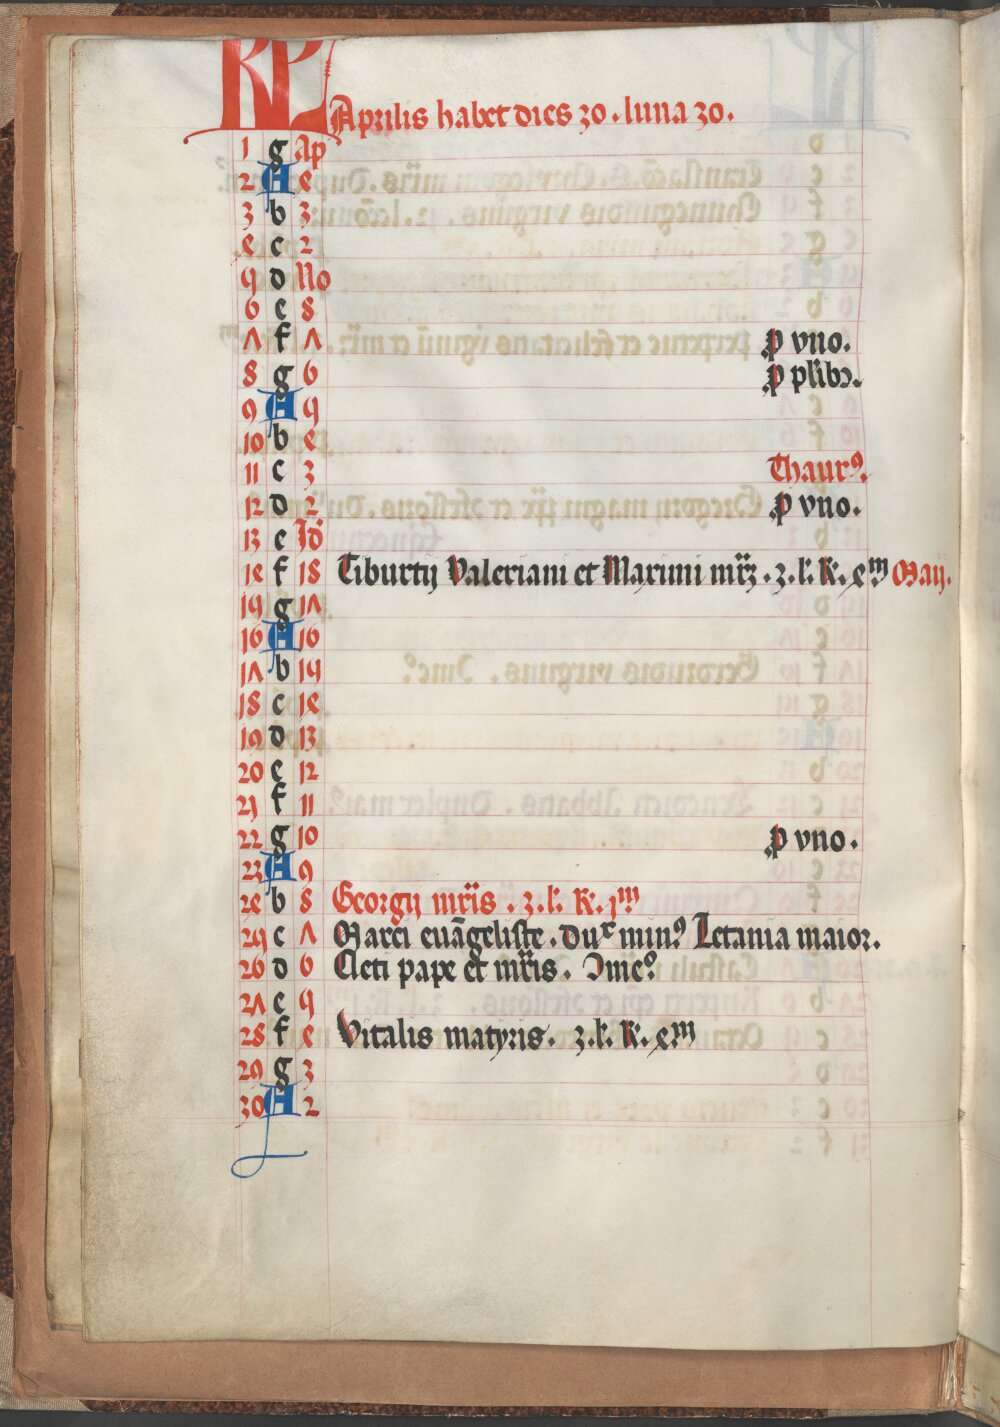 KL Aprilis habet dies 30 . luna 30 .
1 g Ap
2 A 4
3 b 3
4 c 2
5 d No
6 e 8
7 f 7 ꝓ vno .
8 g 6 ꝓ plibꝫ .
9 A 5
10 b 4
11 c 3 Thaurꝰ .
12 d 2 ꝓ vno .
13 e Id
14 f 18 Tiburtij Valeriani et Maximi mr̄ꝫ . 3 . l . K . xᵐ Maij .
15 g 17
16 A 16
17 b 15
18 c 14
19 d 13
20 e 12
21 f 11
22 g 10 ꝓ vno .
23 A 9
24 b 8 Georgij mr̄is . 3 . l . K . jᵐ
25 c 7 Marci euāgeliste . Du minꝰ Letania maior .
26 d 6 Cleti pape et mr̄is .
27 e 5
28 f 4 Vitalis matyris . 3 . l . K . xᵐ
29 g 3
30 A 2